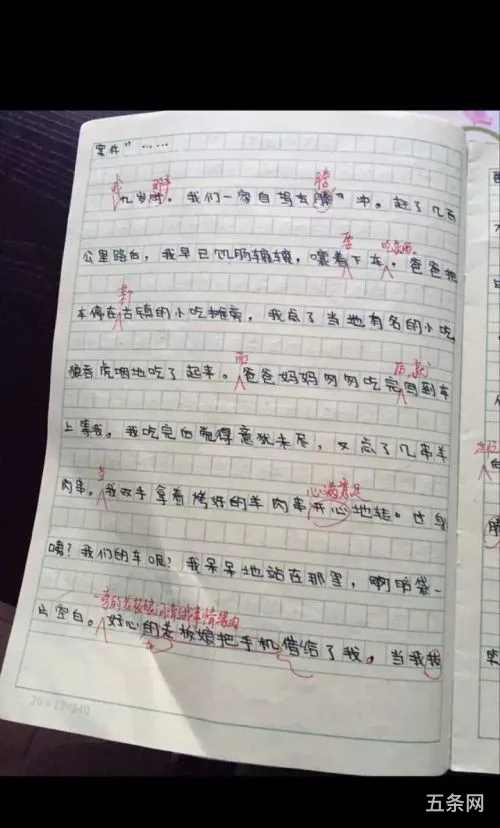 案件"……
我 那年 腾
九岁时。我们一家自驾去腾"冲。赶了几百
要 吃东西。
公里路后，我早已饥肠辘辘，嚷着下车。爸爸把
车
车停在古镇的小吃摊旁，我点了当地有名的小吃，
而 后，就
狼吞虎咽地吃了起来。爸爸妈妈匆匆吃完回到车
上等我。我吃完后觉得意犹未尽，又点了几串羊
当 心满意足
肉串。我双手拿着烤好的羊肉串开心地转。
咦？我们的车呢？我呆呆地站在那里，脑袋一
旁的老板娘 事情
片空白。好心的老板娘把手机借给了我。当我我
20×17=340
五条网